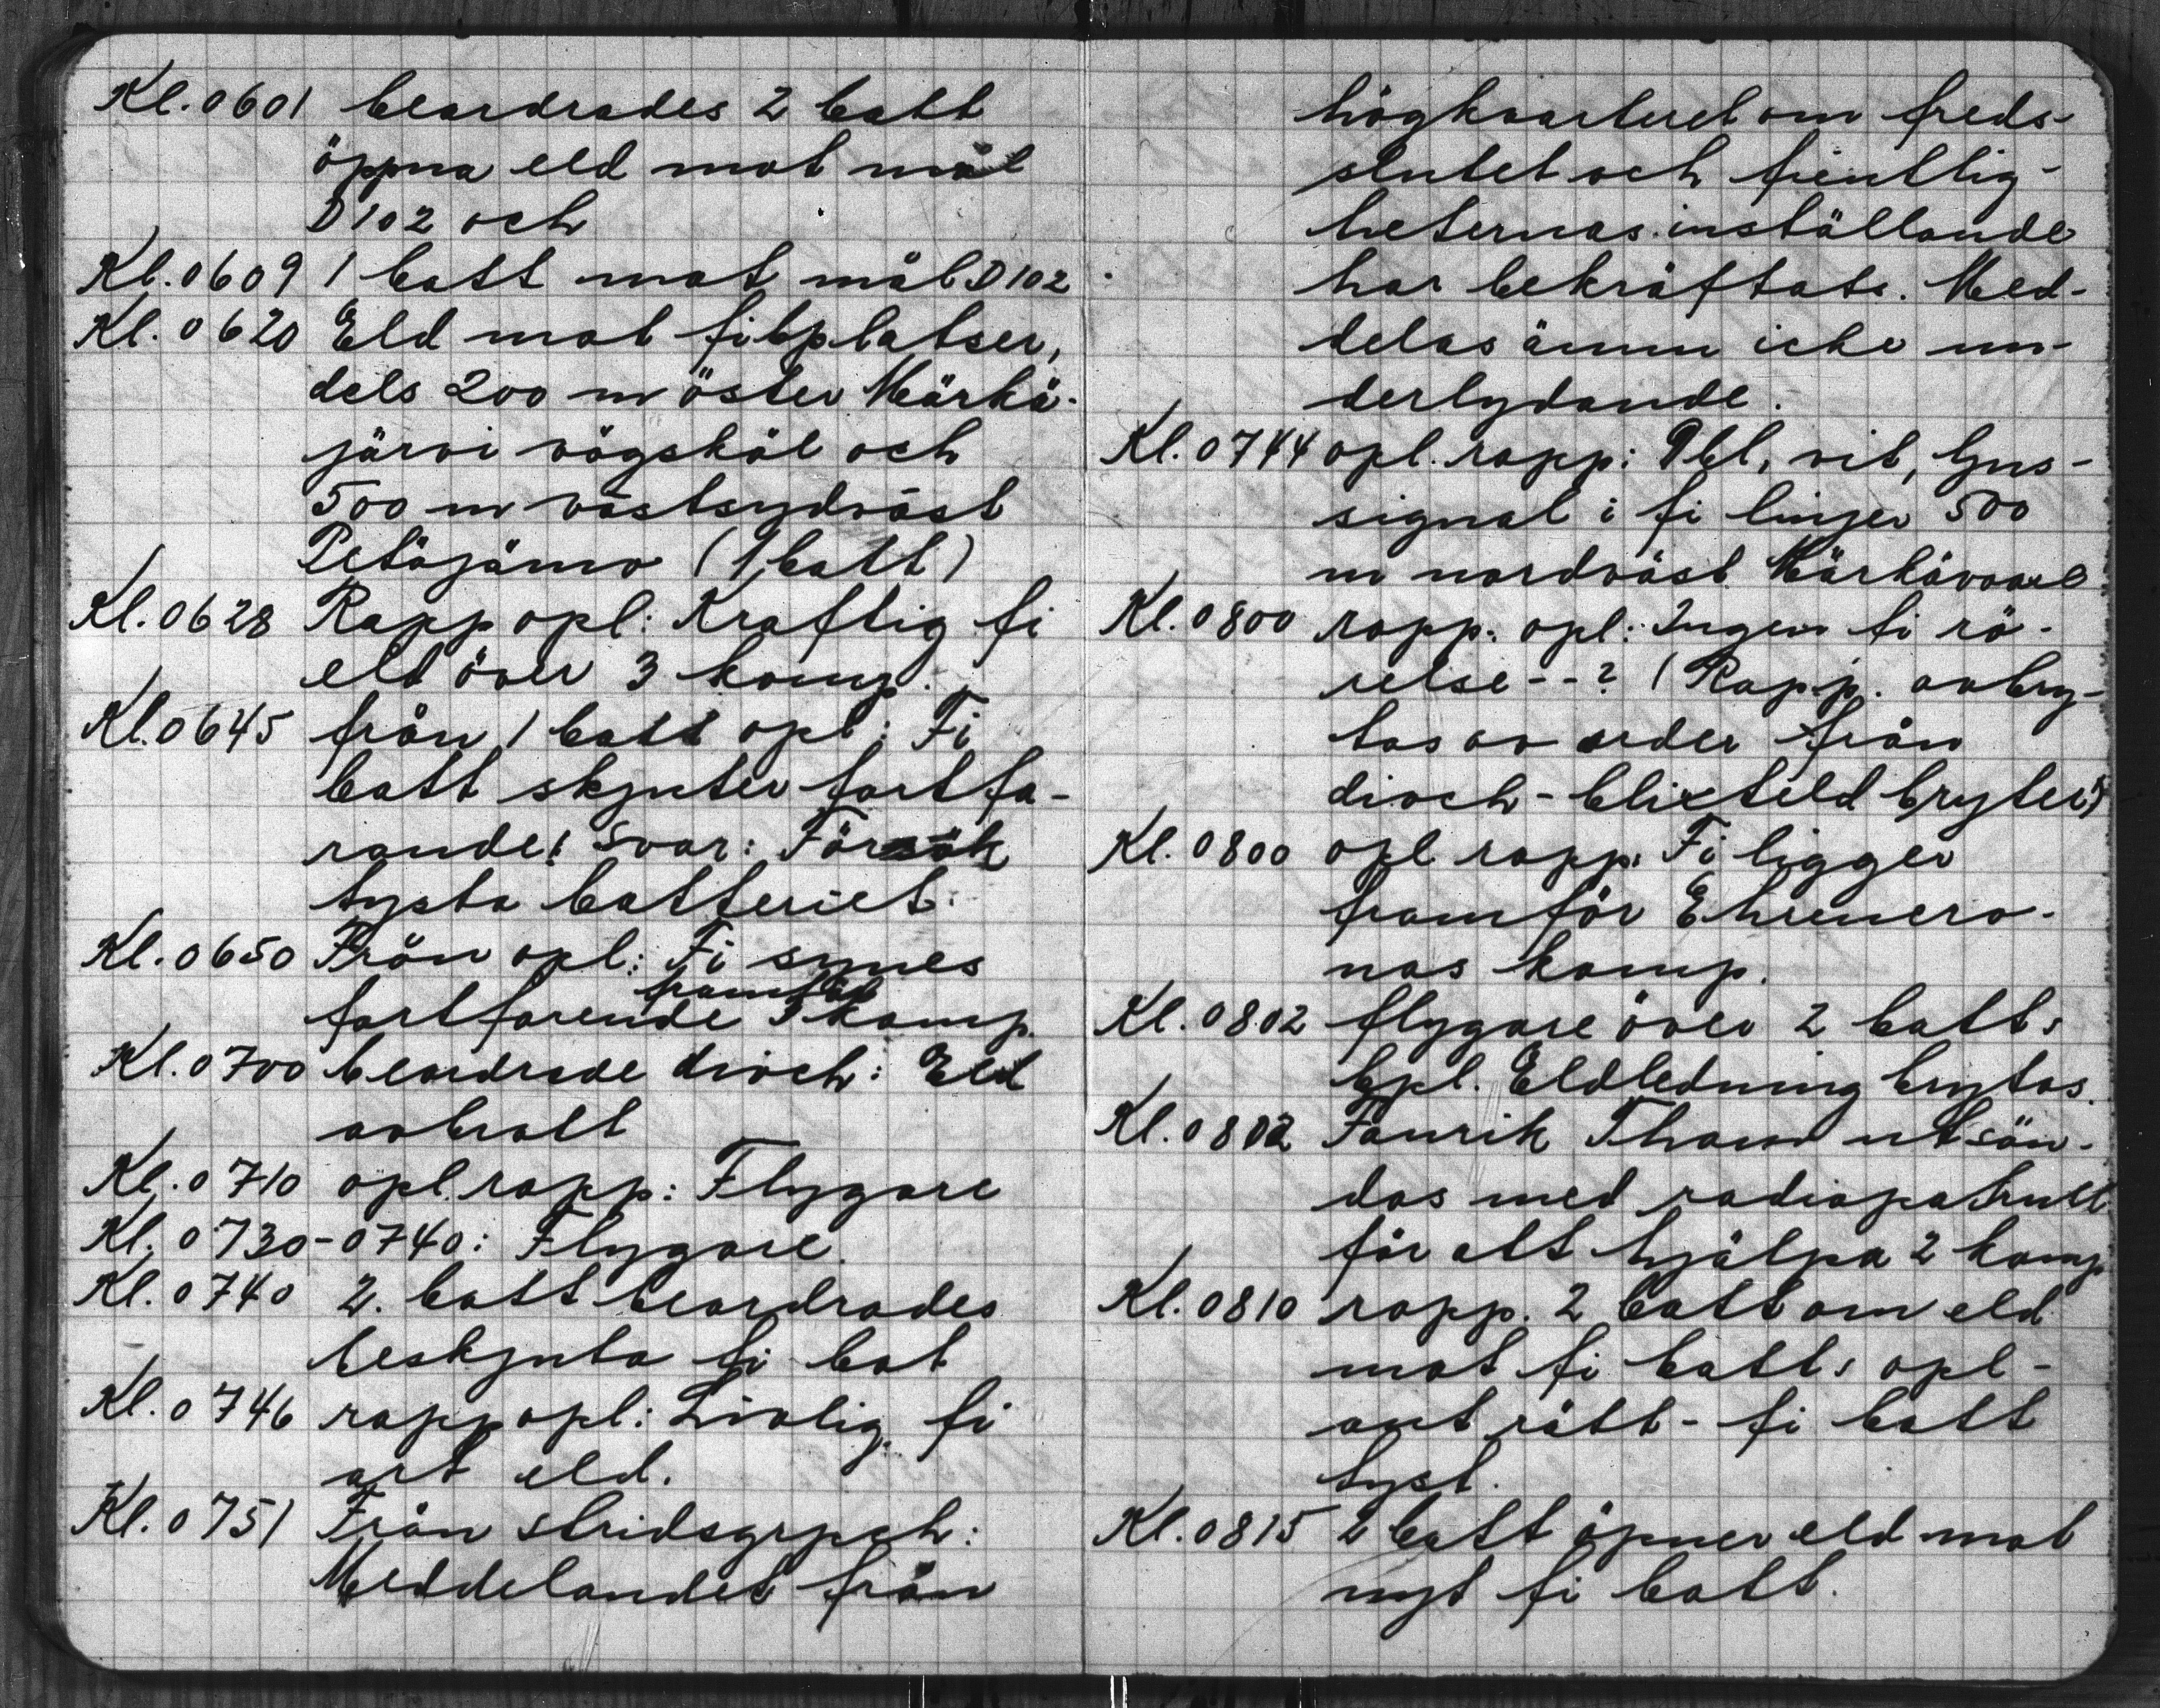 Kl. 0601 beordrades 2 batt
öppna eld mot mål
D102 och
Kl. 0609 1 batt mot mål D102
Kl. 0620 Eld mot fibplatser,
dels 200 m öster Märkä-
järvi vägskäl och
500 m västsydväst
Petäjämo (1 batt)
Kl. 0628 Rapp opl: Kraftig fi
eld över 3 komp.
Kl. 0645 från 1 batt opl: Fi
batt skjuter fortfa-
rande! Svar: Försök
tysta batteriet.
Kl. 0650 Från opl: Fi synes
framför
fortfarende 3 komp.
Kl. 0700 beordrade divch: Eld
avbrott
Kl. 0710 opl. rapp: Flygare
Kl. 0730-0740: Flygare.
Kl. 0740 2. batt beordrades
beskjuta fi bat
Kl. 0746 rapp opl: Livlig fi
art eld.
Kl. 0751 Från stridsgrpch:
Meddelandet från
högkvarteret om freds-
slutet och fientlig-
heternas inställande
har bekräftats. Med-
delas ännu icke un-
derlydande.
Kl. 0744 opl. rapp: 9 bl, vit, ljus-
signal i fi linjer 500
m nordväst Märkävaara
Kl. 0800 rapp. opl: Ingen fi rö-
relse--? (Rapp. avbry-
tas av order från
divch - blixteld bryter)
Kl. 0800 opl rapp: Fi ligger
framför Ehrenero-
nas komp.
Kl. 0802 flygare över 2 batts
bpl. Eldledning brytas.
Kl. 0802 Fänrik Tham utsän-
das med radiopatrull
för att hjälpa 2 komp
Kl. 0810 rapp. 2 batt om eld
mot fi batts opl -
ant rätt - fi batt
tyst.
Kl. 0815 2 batt öpner eld mot
nyt fi batt.